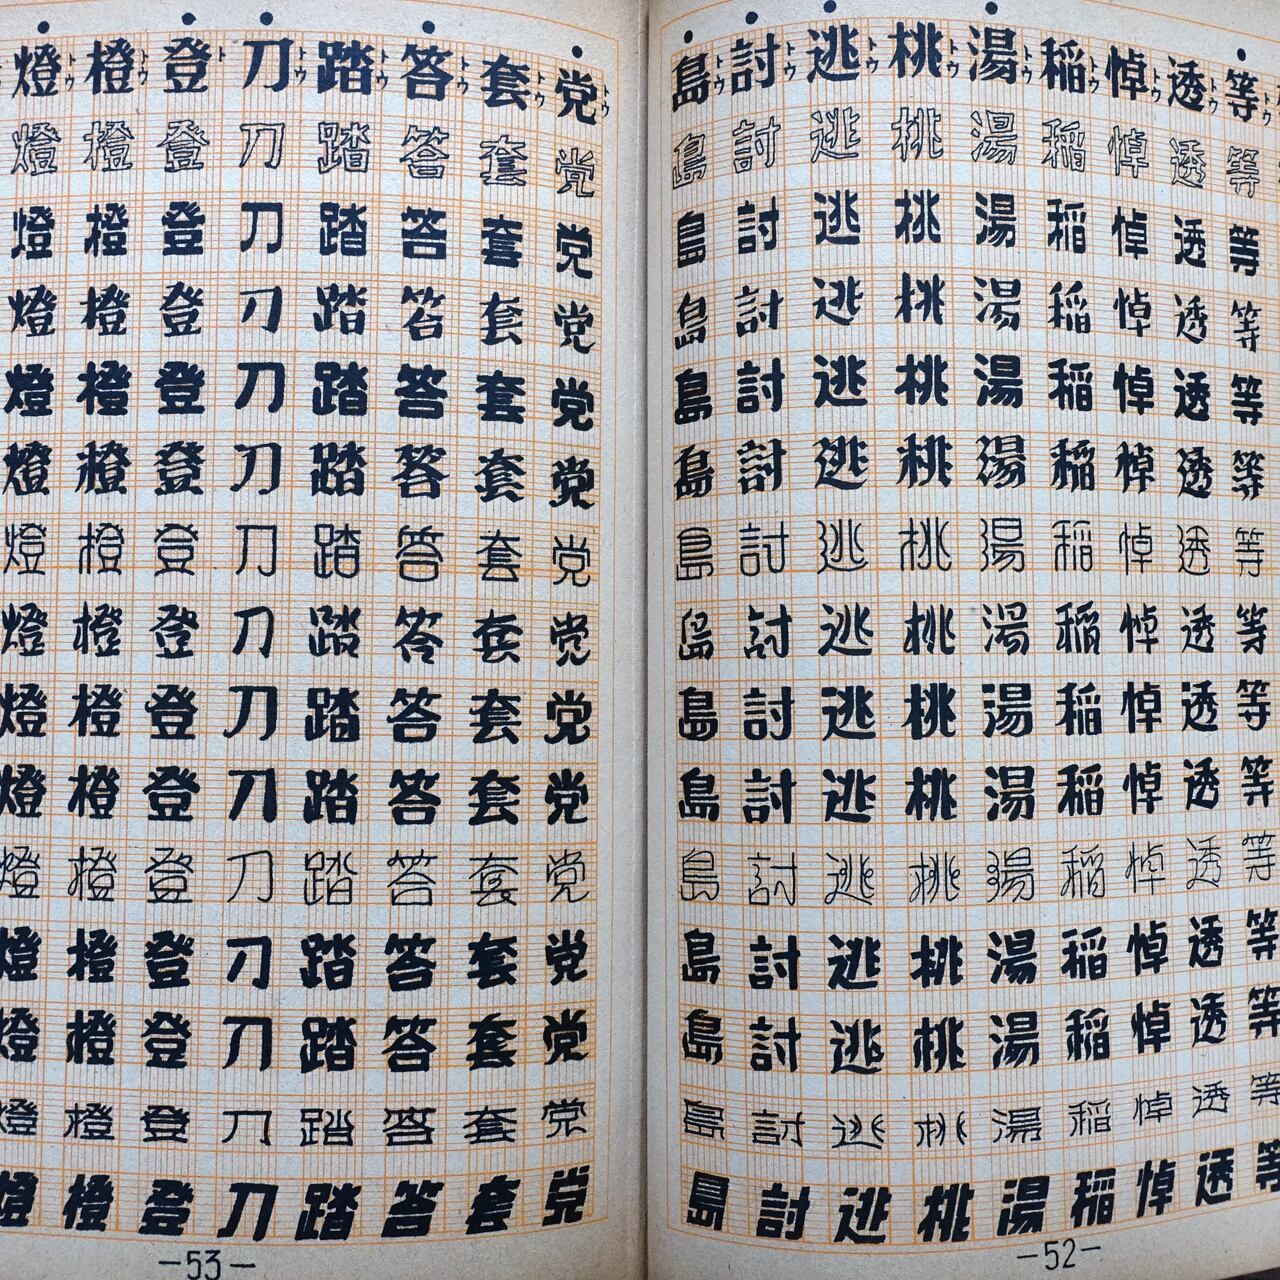 等トウ等等等等等等等等等等等等等等
透トウ透透透透透透透透透透透透透透
悼トウ悼悼悼悼悼悼悼悼悼悼悼悼悼悼
稲トウ稲稲稲稲稲稲稲稲稲稲稲稲稲稲
湯トウ湯湯湯湯湯湯湯湯湯湯湯湯湯湯
桃トウ桃桃桃桃桃桃桃桃桃桃桃桃桃桃
逃トウ逃逃逃逃逃逃逃逃逃逃逃逃逃逃
討トウ討討討討討討討討討討討討討討
島トウ島島島島島島島島島島島島島島
—52—
党トウ党党党党党党党党党党党党党党
套トウ套套套套套套套套套套套套套套
答トウ答答答答答答答答答答答答答答
踏トウ踏踏踏踏踏踏踏踏踏踏踏踏踏踏
刀トウ刀刀刀刀刀刀刀刀刀刀刀刀刀刀
登ト登登登登登登登登登登登登登登
橙トウ橙橙橙橙橙橙橙橙橙橙橙橙橙橙
燈トウ燈燈燈燈燈燈燈燈燈燈燈燈燈燈
—53—